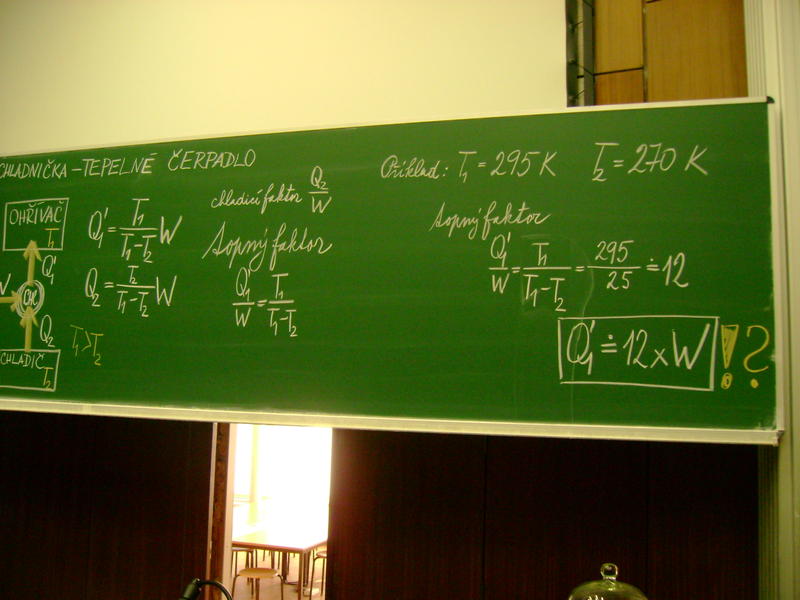 CHLADNIČKA – TEPELNÉ ČERPADLO
OHŘÍVAČ
T₁
Q₁'
W
CHL
Q₂
CHLADIČ
T₂
Q₁' = T₁/(T₁-T₂) W
Q₂ = T₂/(T₁-T₂) W
T₁>T₂
chladicí faktor Q₂/W
Topný faktor
Q₁'/W = T₁/(T₁-T₂)
Příklad: T₁ = 295 K T₂ = 270 K
Topný faktor
Q₁'/W = T₁/(T₁-T₂) = 295/25 ≐ 12
Q₁' ≐ 12 x W !?